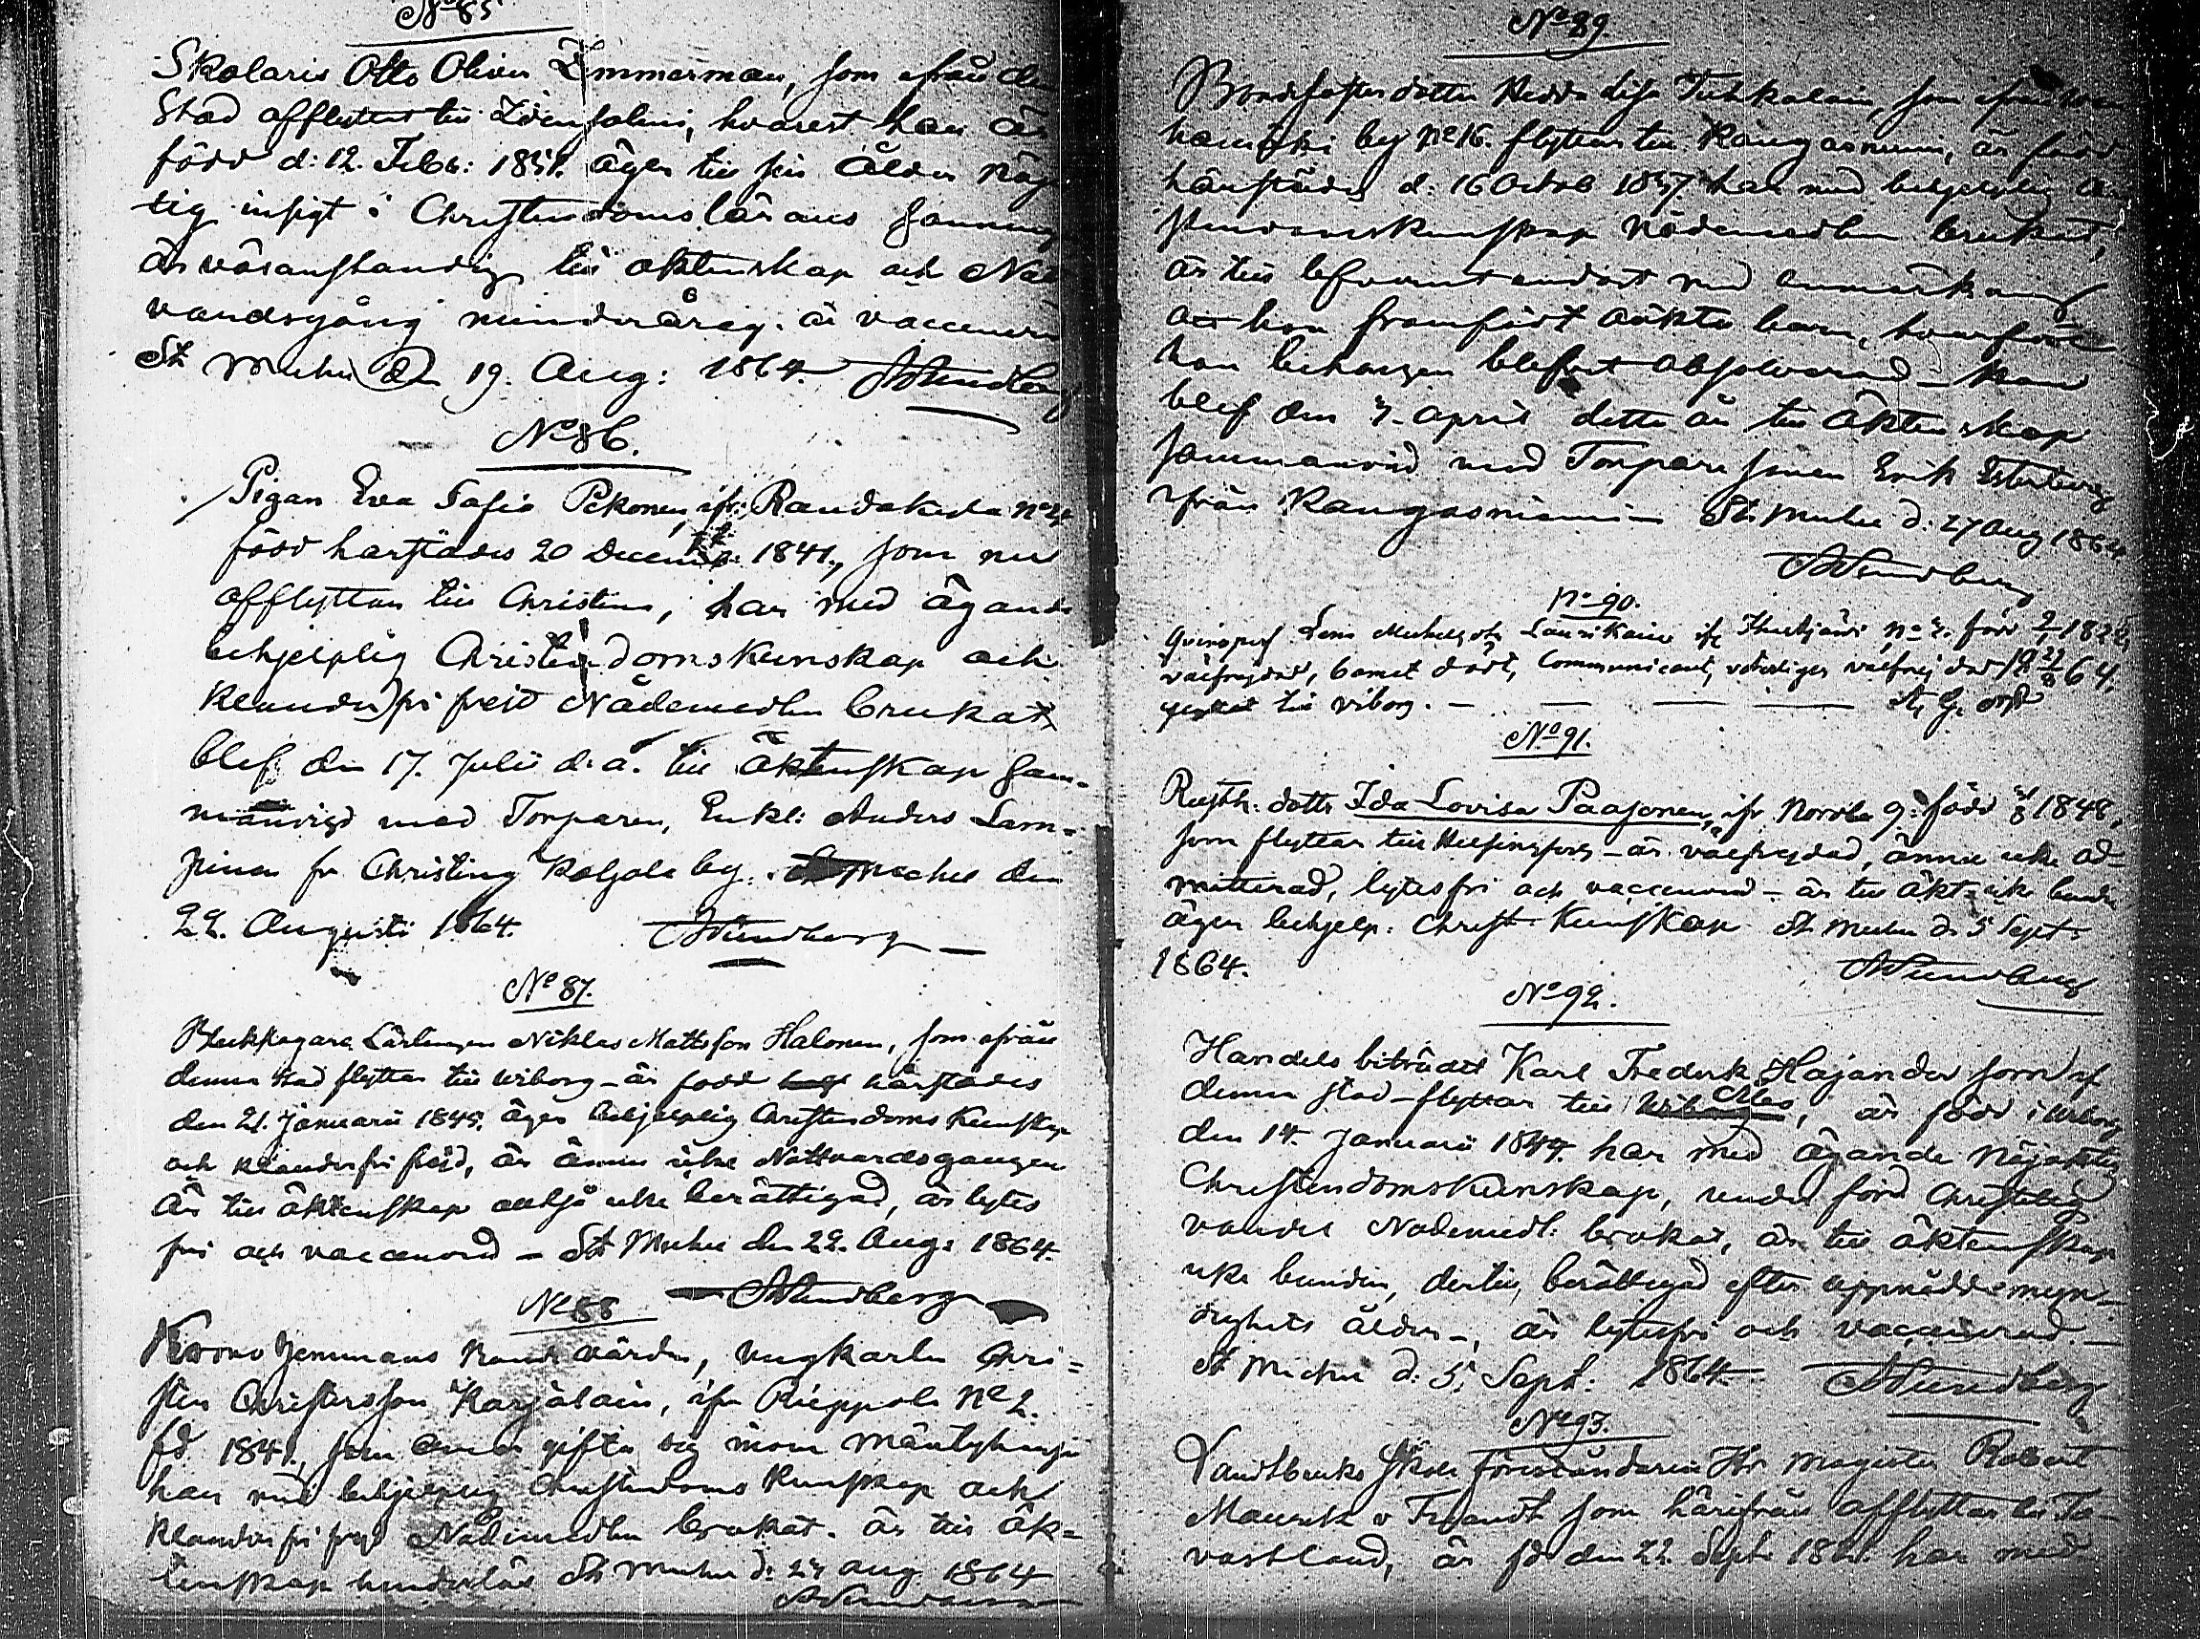 No 85
Skolaris Otto Oliver Zimmerman, som ifrån den
Stad afflyttat till Idensalmi, hvarest han är
född d: 12. Febr: 1851. äger till sin ålder nöj
tig insigt i Christendomsläraus sanning
är väranständig till äktenskap och Natt
vardsgång minderårig. är vaccinerad
St Michel den 19. Aug: 1864. Sundberg
No 86.
Pigan Eva Sofia Pekonen, ifr: Randakuda No 4
född härstädes 20 Decemb: 1841, som nu
afflyttar till Christina, har med ägande
behjelplig Christendomskunskap och
klanderfri frejd Nådemedlen brukat
blef den 17. Julii d. å. till äktenskap sam-
manvigd med Torparen, Enkl: Anders Lam-
pinen fr Christina Koljola by. St Michel den
22. Augusti 1864. Sundberg
No 87.
Bleckslagare Lärlingen Niklas Mattsson Halonen, som ifrån
denna stad flyttar till Wiborg – är född härstädes
den 21. Januarii 1845. äger behjelplig Christendoms Kunskap
och klanderfri frejd, är ännu icke Nattvardsgången
är till äktenskap altså icke berättigad, är lytes
fri och vaccinerad – St Michel den 22. Aug: 1864.
Sundberg
No 88
Krono Jemmans värden, ungkarlen Chri-
sten Christersson Karjalain, ifr Rieppola No 2.
fd 1841, som ämnar gifta sig inom Mäntyharju
har med behjelplig Christendoms Kunskap och
klanderfri frejd Nådemedlen brukat. är till äk-
tenskap hinderlös St Michel d: 27 aug 1864
Sundberg
No 89.
dotter Hedda Lisa Tuhkalain, som ifrån
by No 16. flyttar till Kangasniemi, är född
härstädes d: 16 Octob 1837. har med behjelplig Chri
stendomskunskap Nådemedlen brukat,
är till lefvernet endast med anmärkning
att hon framfödt oäkta barn, hvarför
hon behörigen blifvit absolverad – hon
blef den 7. april detta år till äktenskap
sammanvid med Torpare sonen Erik
ifrån Kangasniemi – St. Michel d: 27 Aug 1864.
Sundberg
No 90.
Qvinsp. Lena Michelsdr Laurikain ifr No 7. född 1822,
välfrejdad, barnet dödt, Communicant,
flyttat till Viborg. –
No 91.
Rusth: dottr Ida Lovisa Paasonen, ifr Norola 9: född 1848,
som flyttar till Helsingfors – är välfrejdad, ännu icke ad-
mitterad, lytesfri och vaccinerad – är till äkt. icke bunden
äger behjelp: Christ. Kunskap St Michel d. 5 Sept:
1864. Sundberg
No 92.
Handels biträdet Karl Fredrik Hajander som af
denna stad – flyttar till , är född i Wiborg
den 14. Januarii 1844. har med ägande nöjaktig
Christendomskunskap, under förd Christelig
vandel Nademedl: brukat, är till äktenskap
icke bunden, dertill berättigad efter uppnådde myn-
dighets ålder –, är lytesfri och vaccinerad. –
St Michel d. 5. Sept: 1864. Sundberg
No 93.
Landtbruks Skole föreståndaren Hr Magister Robert
Maurits v Fieandt som härifrån afflyttar till Ta-
vastland, är fd den 22. Sept. har med